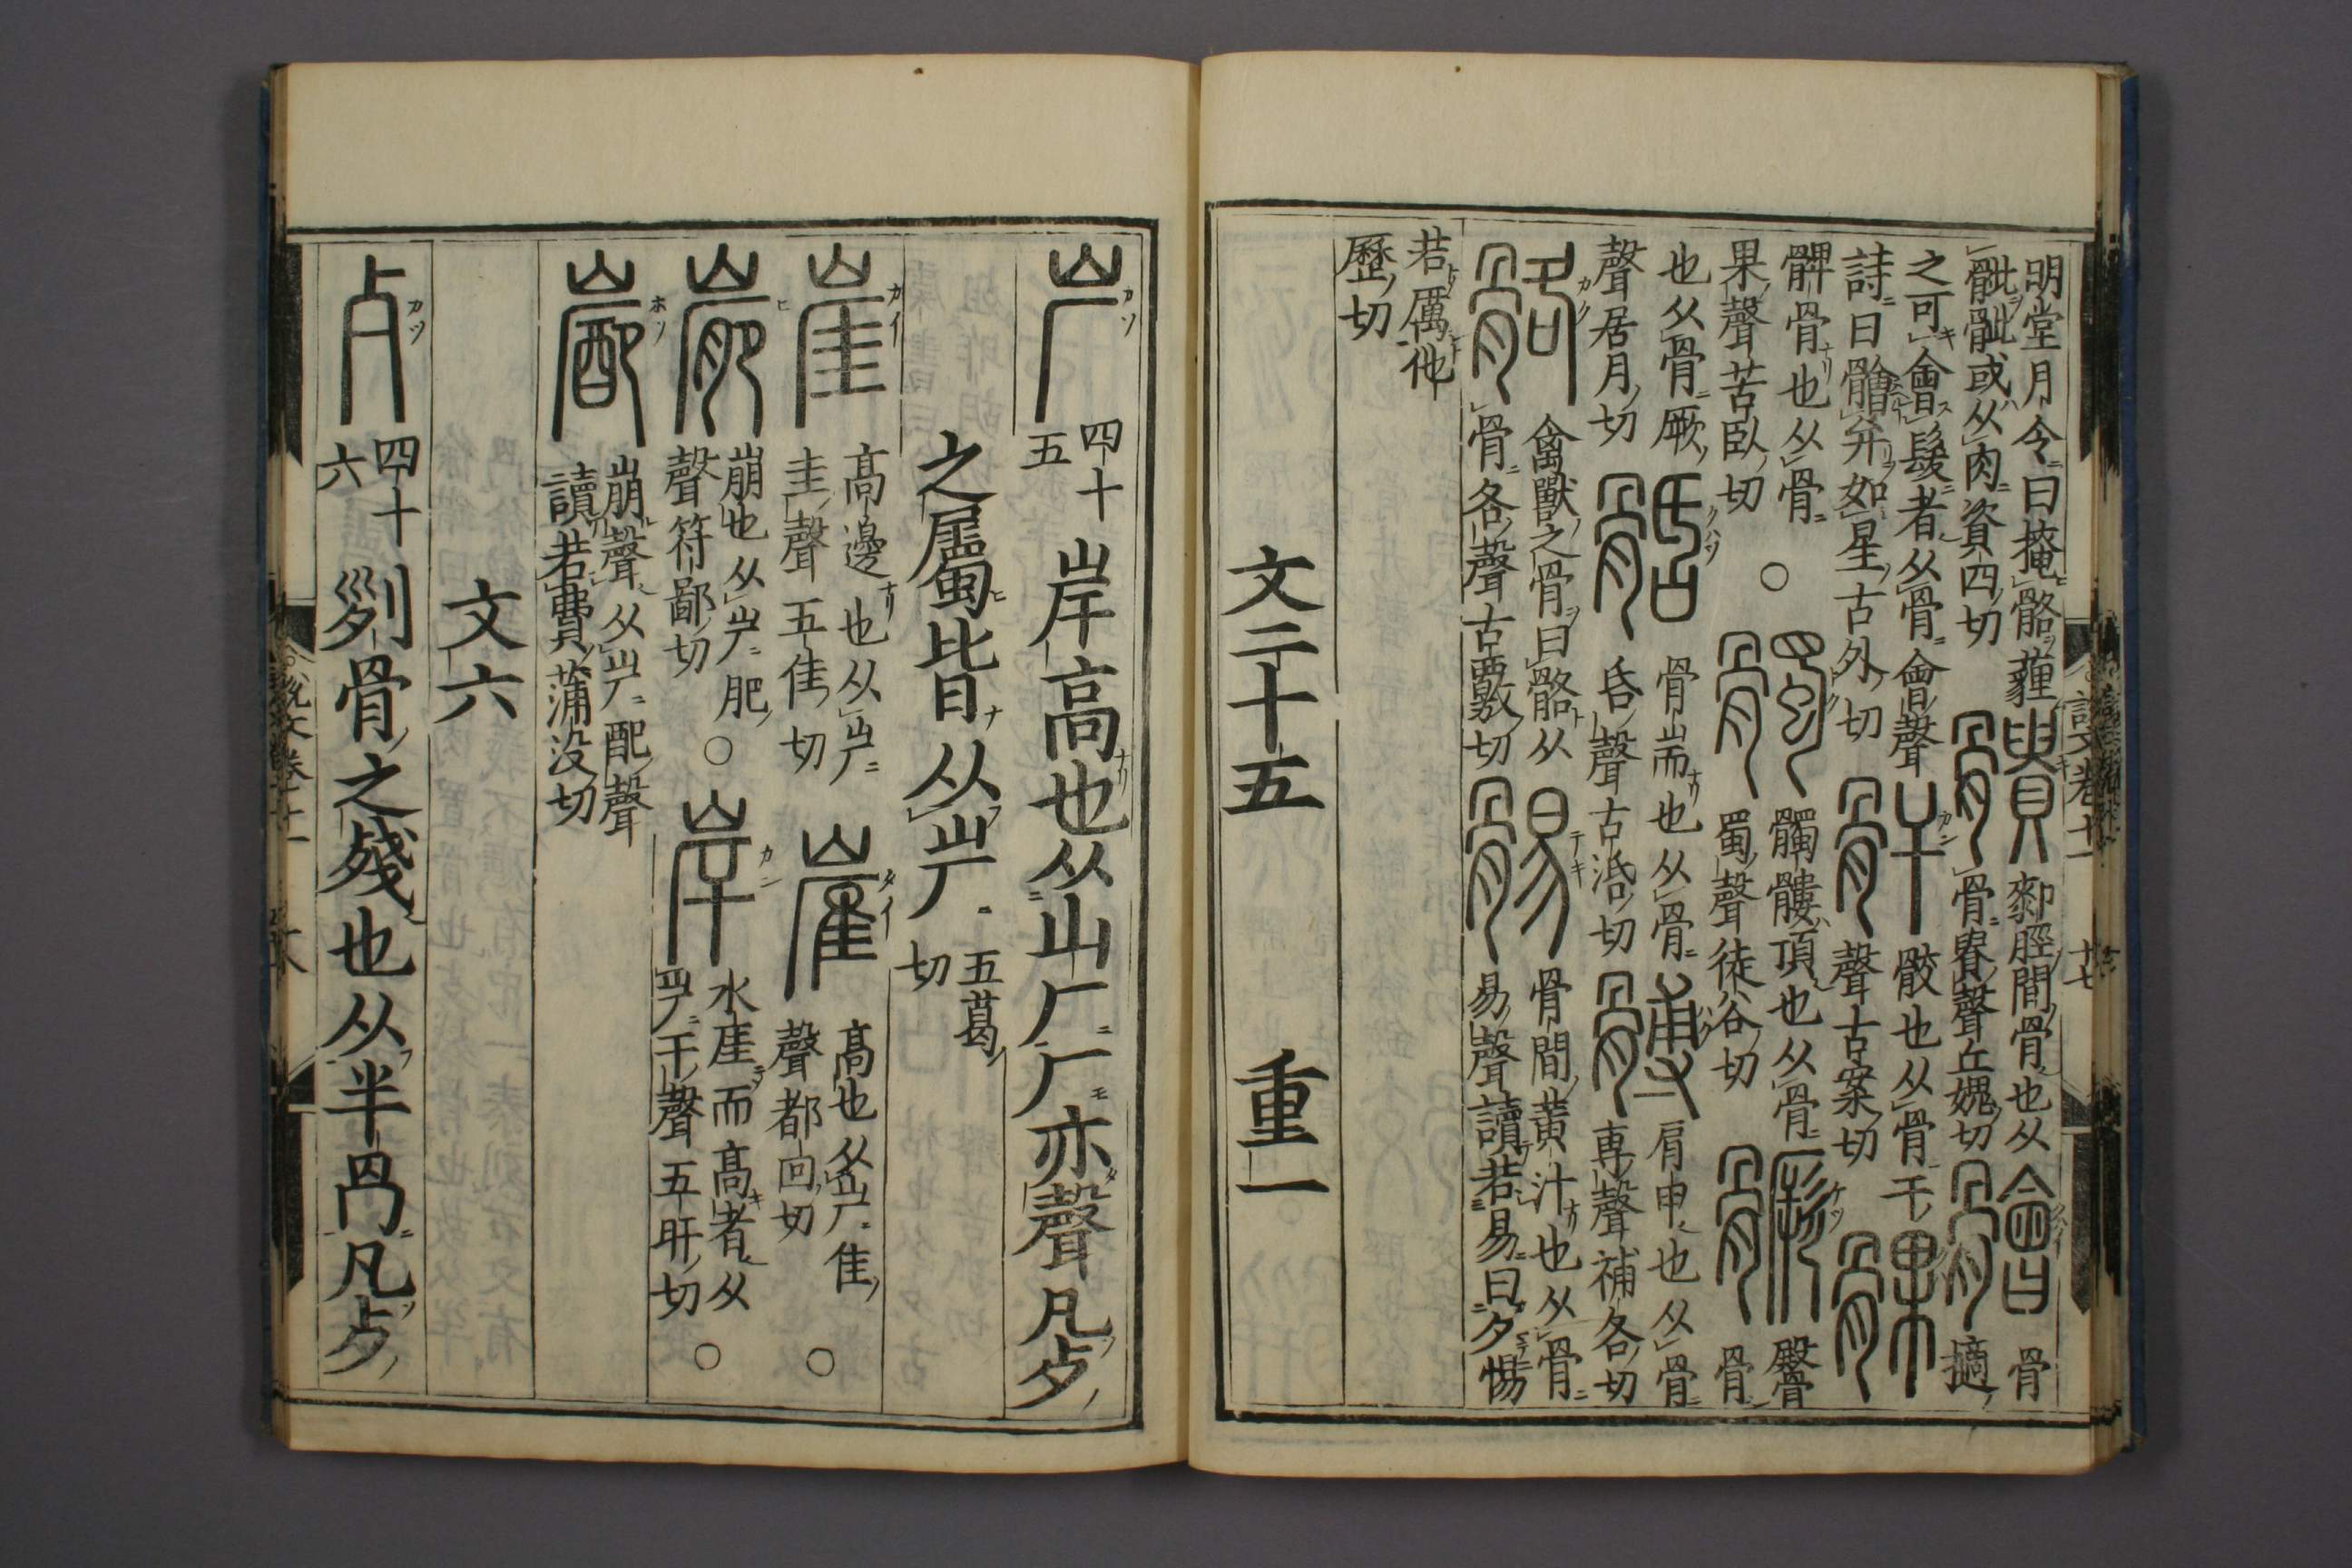 明堂月令曰掩骼薶骴骴或从肉資四切 䯣 厀脛間骨也从骨𠀐聲丘媿切 䯤 骨擿
之可會髮者从骨會聲詩曰䯤弁如星古外切 骭 骹也从骨干聲古案切 髁
髀骨也从骨果聲苦臥切 ○ 髑 髑髏頂也从骨蜀聲徒谷切 𩪗 臀骨
也从骨厥聲居月切 䯏 骨耑也从骨昏聲古活切 髆 肩甲也从骨尃聲補各切
骼 禽獸之骨曰骼从骨各聲古覈切 䯜 骨間黃汁也从骨易聲讀若易曰夕惕
若厲他歷切
文二十五 重一
屵 四十五 岸高也从山厂厂亦聲凡屵
之屬皆从屵 五葛切
崖 高邊也从屵圭聲五佳切 嵟 高也从屵隹聲都回切 ○
𡹃 崩也从屵肥聲符鄙切 ○ 岸 水厓而高者从屵干聲五旰切 ○
嶏 崩聲从屵配聲讀若費蒲没切
文六
歺 四十六 𠛱骨之殘也从半冎凡歺